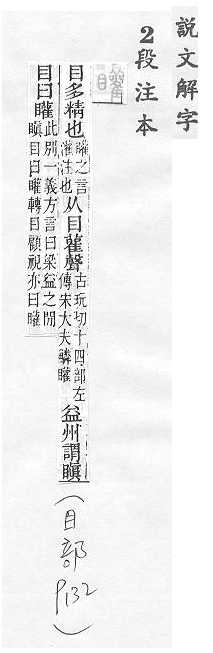 説文解字
2段注本
目多精也矔之言灌注也从目雚聲古玩切十四部左傳宋大夫鱗矔益州謂瞋
目曰矔此別一義方言曰梁益之閒瞋目曰矔轉目顧視亦曰矔
(目部P132)